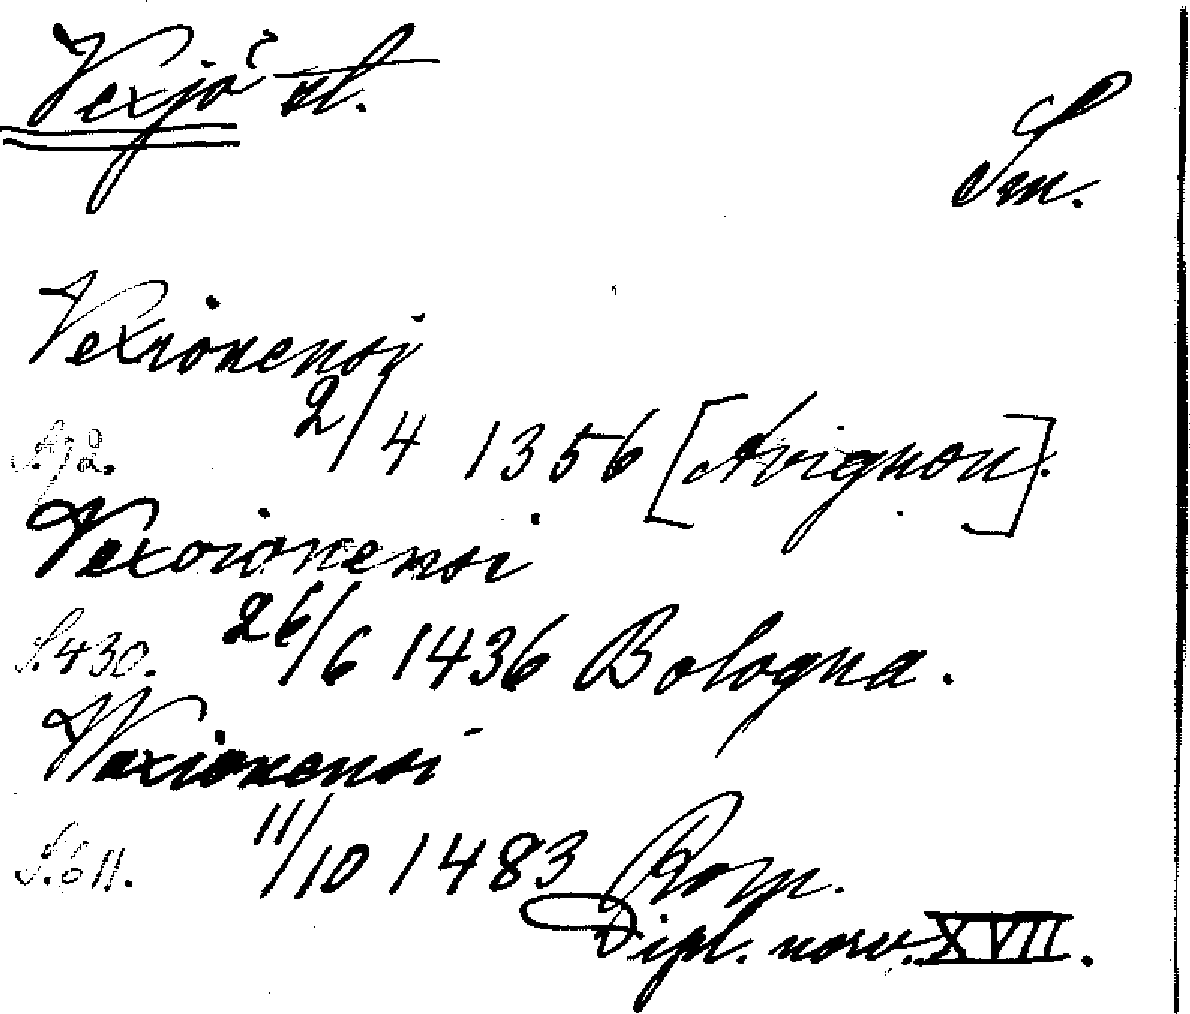 Vexjö st.
Sm.
Vexionensi
2/4 1356 [Avignon].
Vexoionensi
S. 430. 26/6 1436 Bologna.
Waxionensi
S. 611. 11/10 1483 Rom.
Dipl. norv. XVII.